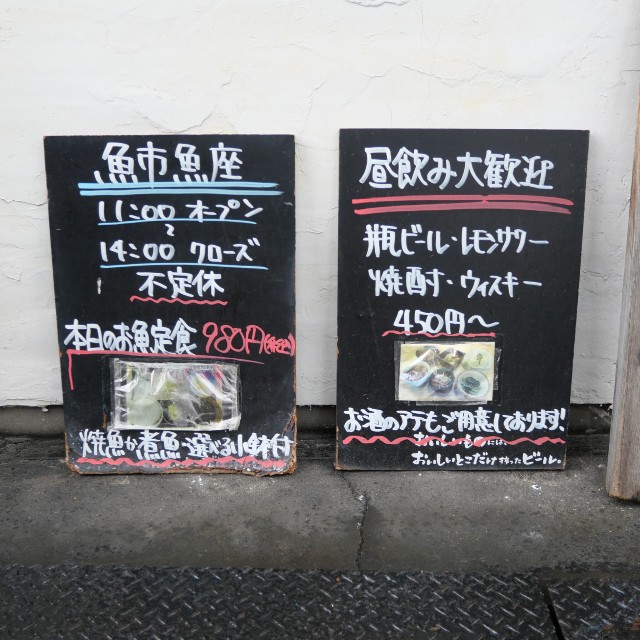 魚市魚座
11:00 オープン
～
14:00 クローズ
不定休
本日のお魚定食 980円(税込)
焼魚か煮魚 選べる小鉢付
昼飲み大歓迎
瓶ビール・レモンサワー
焼酎・ウィスキー
450円～
お酒のアテもご用意しております!
おいしいものには、
おいしいとこだけ搾ったビール。